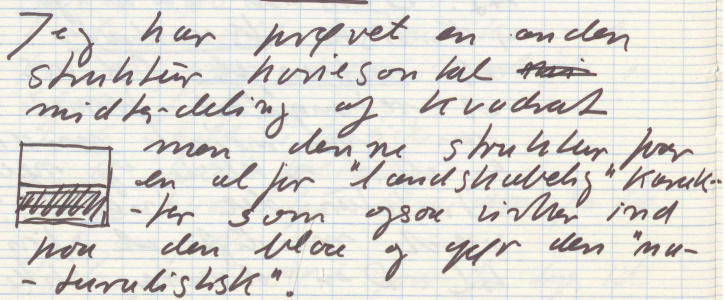 Jeg har prøvet en anden
struktur horiesontal
midterdeling af kvadrat
men denne struktur faar
en al for "landskabelig" karak-
-ter som ogsaa virker ind
paa den blaa og gør den "na-
-turalistisk".